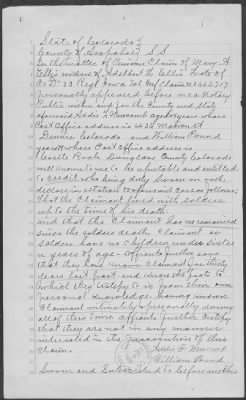 State of Colorado }
County of Arapahoe } S.S.
In the matter of Pension Claim of Mary A
Ellis widow of Adelbert L. Ellis late of
Co D" 33 Regt Iowa Vol Inf Claim
personally appeared before me a Notary
Public within and for the County and State
aforesaid aged years whose
Post Office address is
Denver Colorado and William Pound
years whose Post Office address is
Castle Rock Douglass County Colorado
well known to me to be reputable and entitled
to credit who being duly sworn
declare in relation to aforesaid case as follows:
That the Claimant lived with soldier
up to the time of his death
and that the Claimant has not remarried
since the soldiers death. Claimant or
soldier have no Children under sixteen
years of age - Affiants further says
that they have known Claimant for thirty
years last past and since the facts to
which they testify to is from their own
personal knowledge having known
Claimant intimately & personally during
all of this time affiants further testify
that they are not in any manner
interested in the prosecution of this
Claim.
William Pound
Sworn and Subscribed to before me this